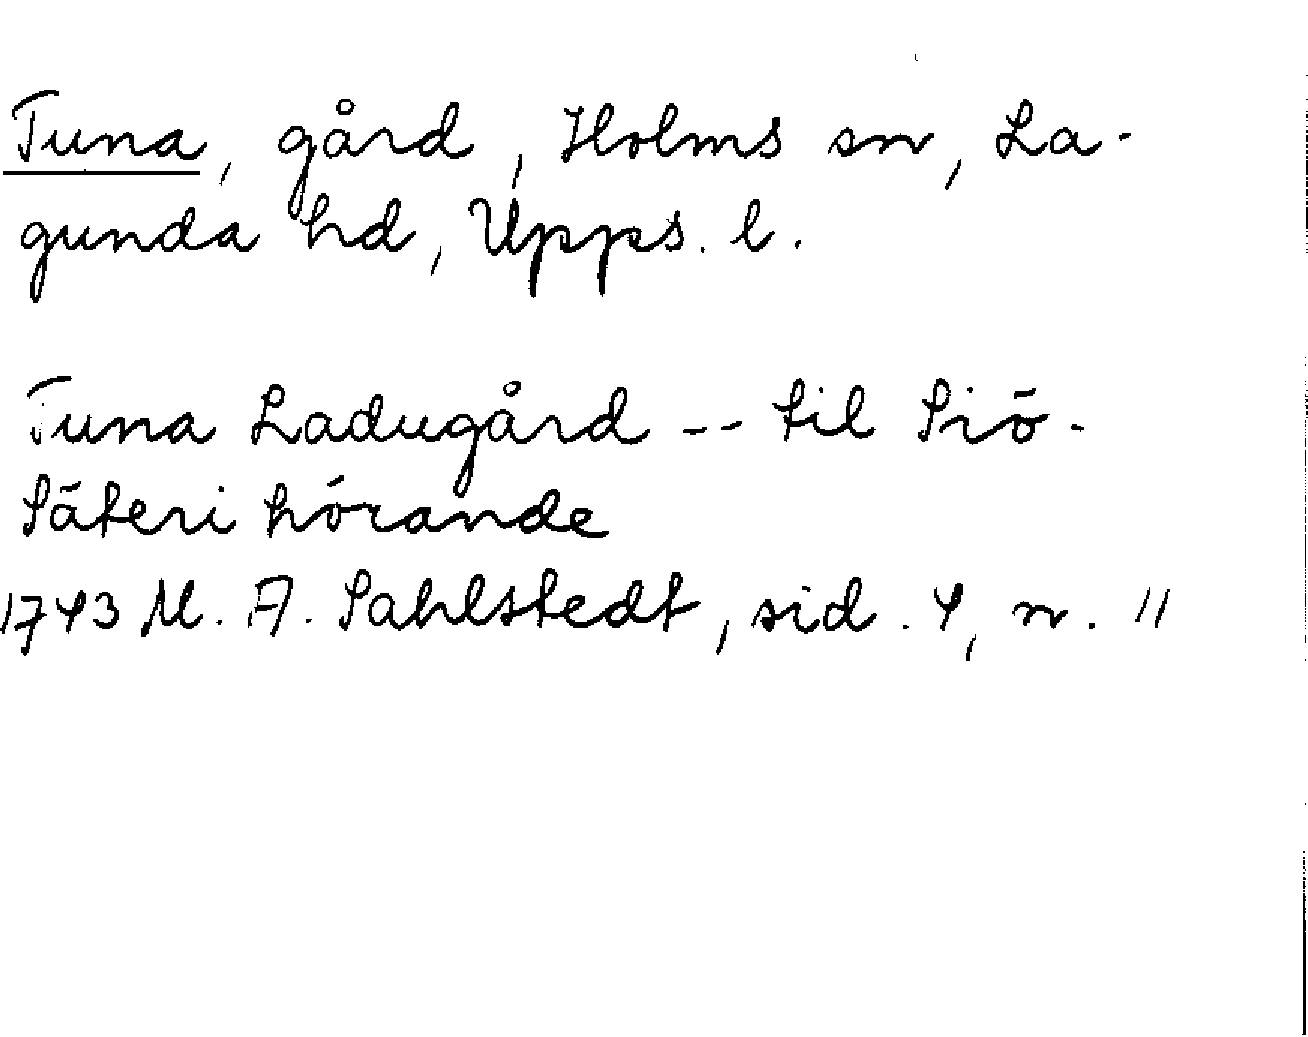 Tuna, gård, Holms sn, La-
gunda hd, Upps. l.
Tuna Ladugård -- til Siö-
Säteri hörande
1743 M. A. Sahlstedt, sid. 4, n. 11